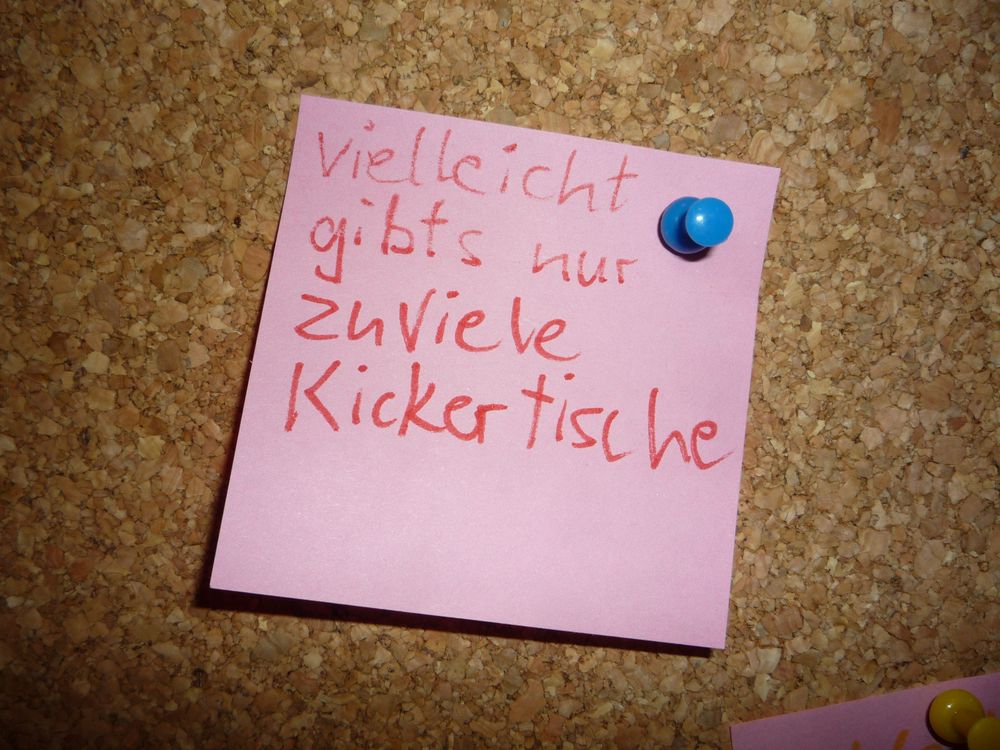 vielleicht
gibts nur
zuviele
Kickertische